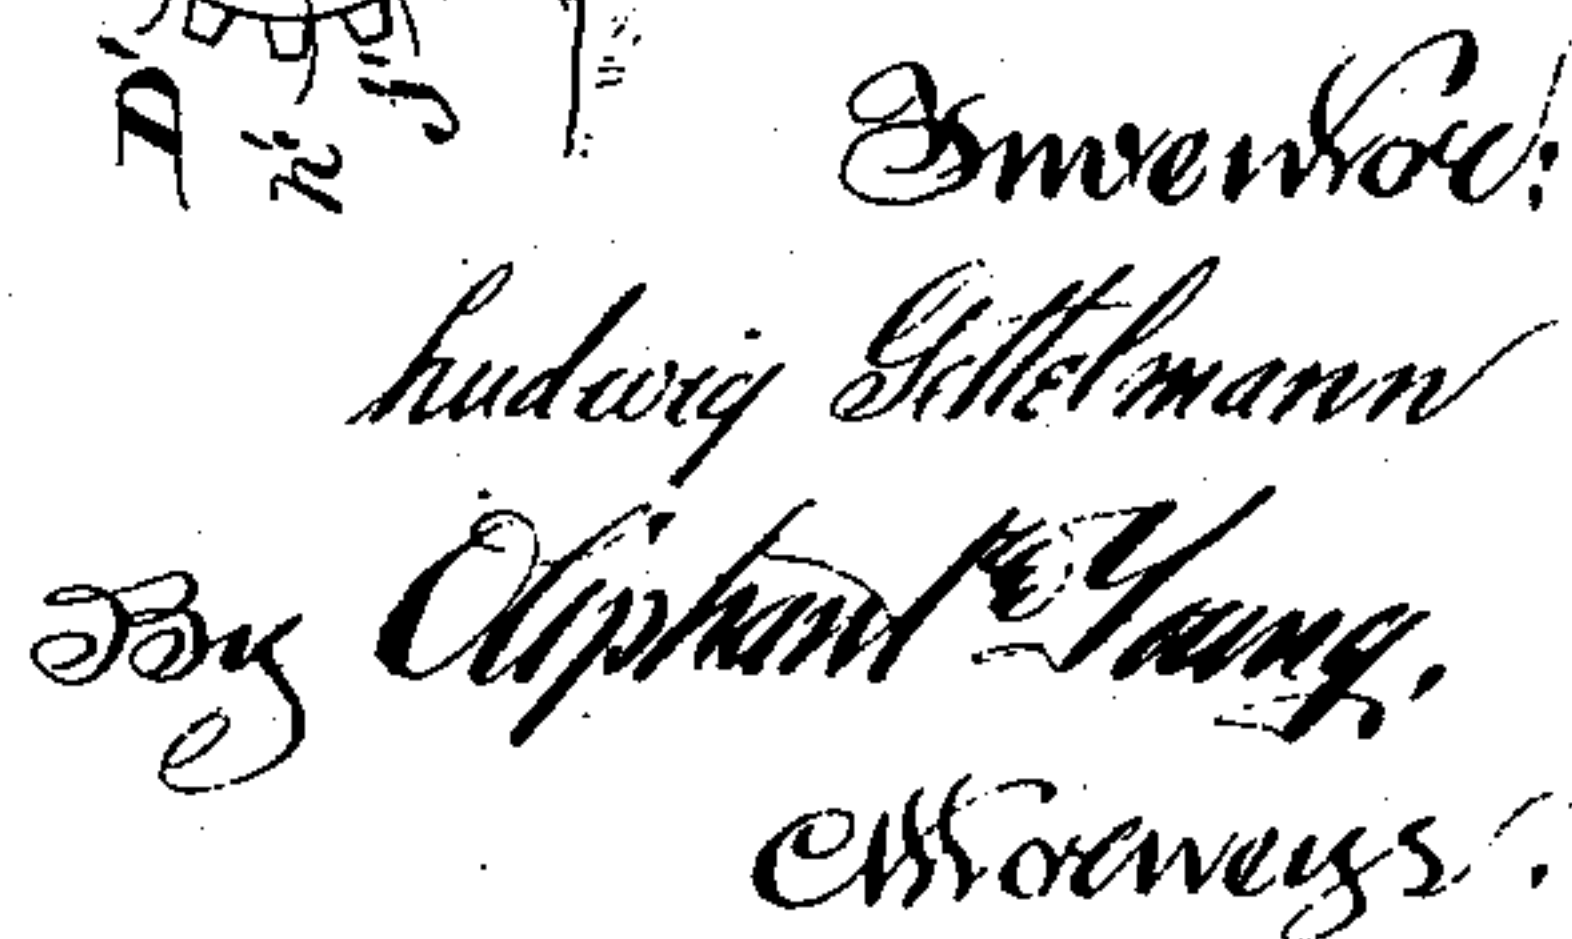 Inventor:
Ludwig Gettelmann
By Oliphant & Young.
Attorneys.